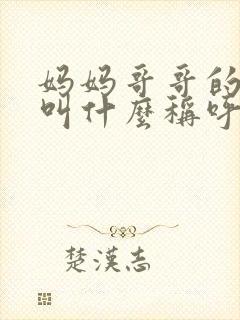 妈妈哥哥的
叫什麼稱呼
楚漢志